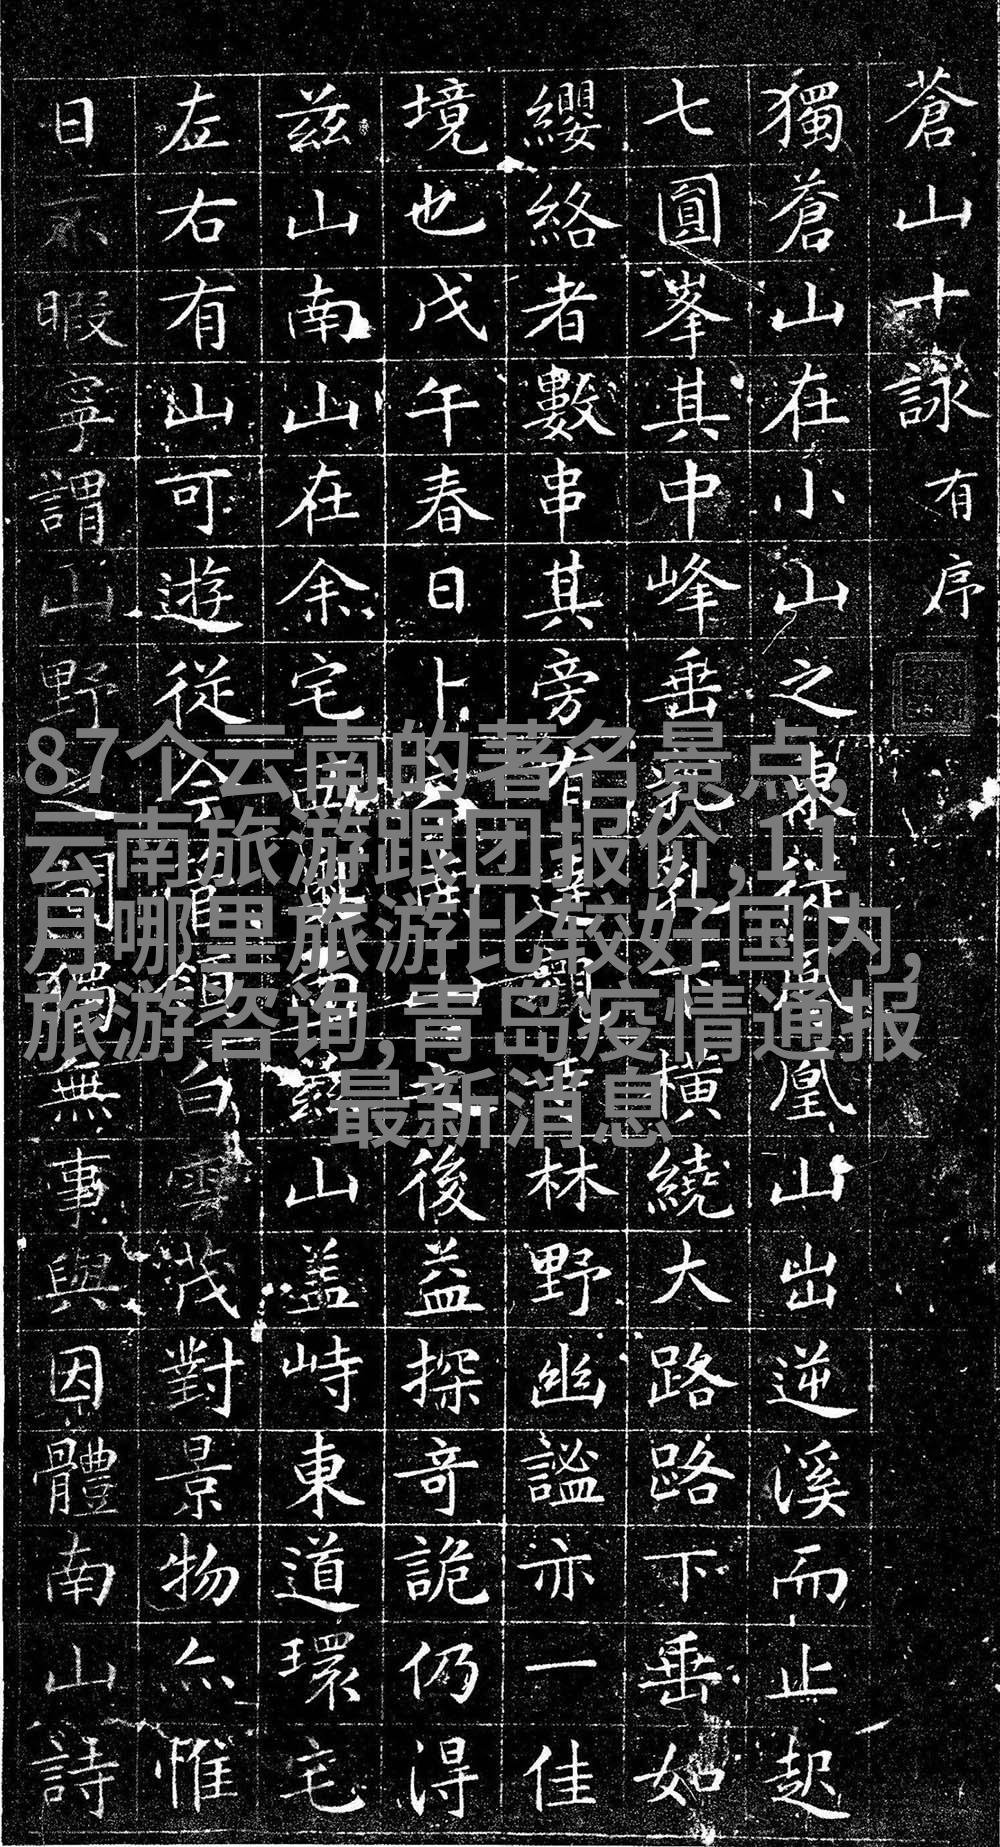 蒼山十詠 有序
獨蒼山在小山之東從鳳凰山出逆溪而止起
七圓峯其中峰垂乳乳下橫繞大路路下垂如
纓絡者數串其旁有達觀林野幽謐亦一佳
境也戊午春日卜後益探奇詭仍得
茲山南山在余宅西南茲山蓋峙東道環宅
左右有山可遊從今白雲茂對景物亦惟
日亦暇寧謂山野之間獨無事與因體南山詩
87个云南的著名景点,
云南旅游跟团报价,11
月哪里旅游比较好国内,
旅游咨询,青岛疫情通报
最新消息